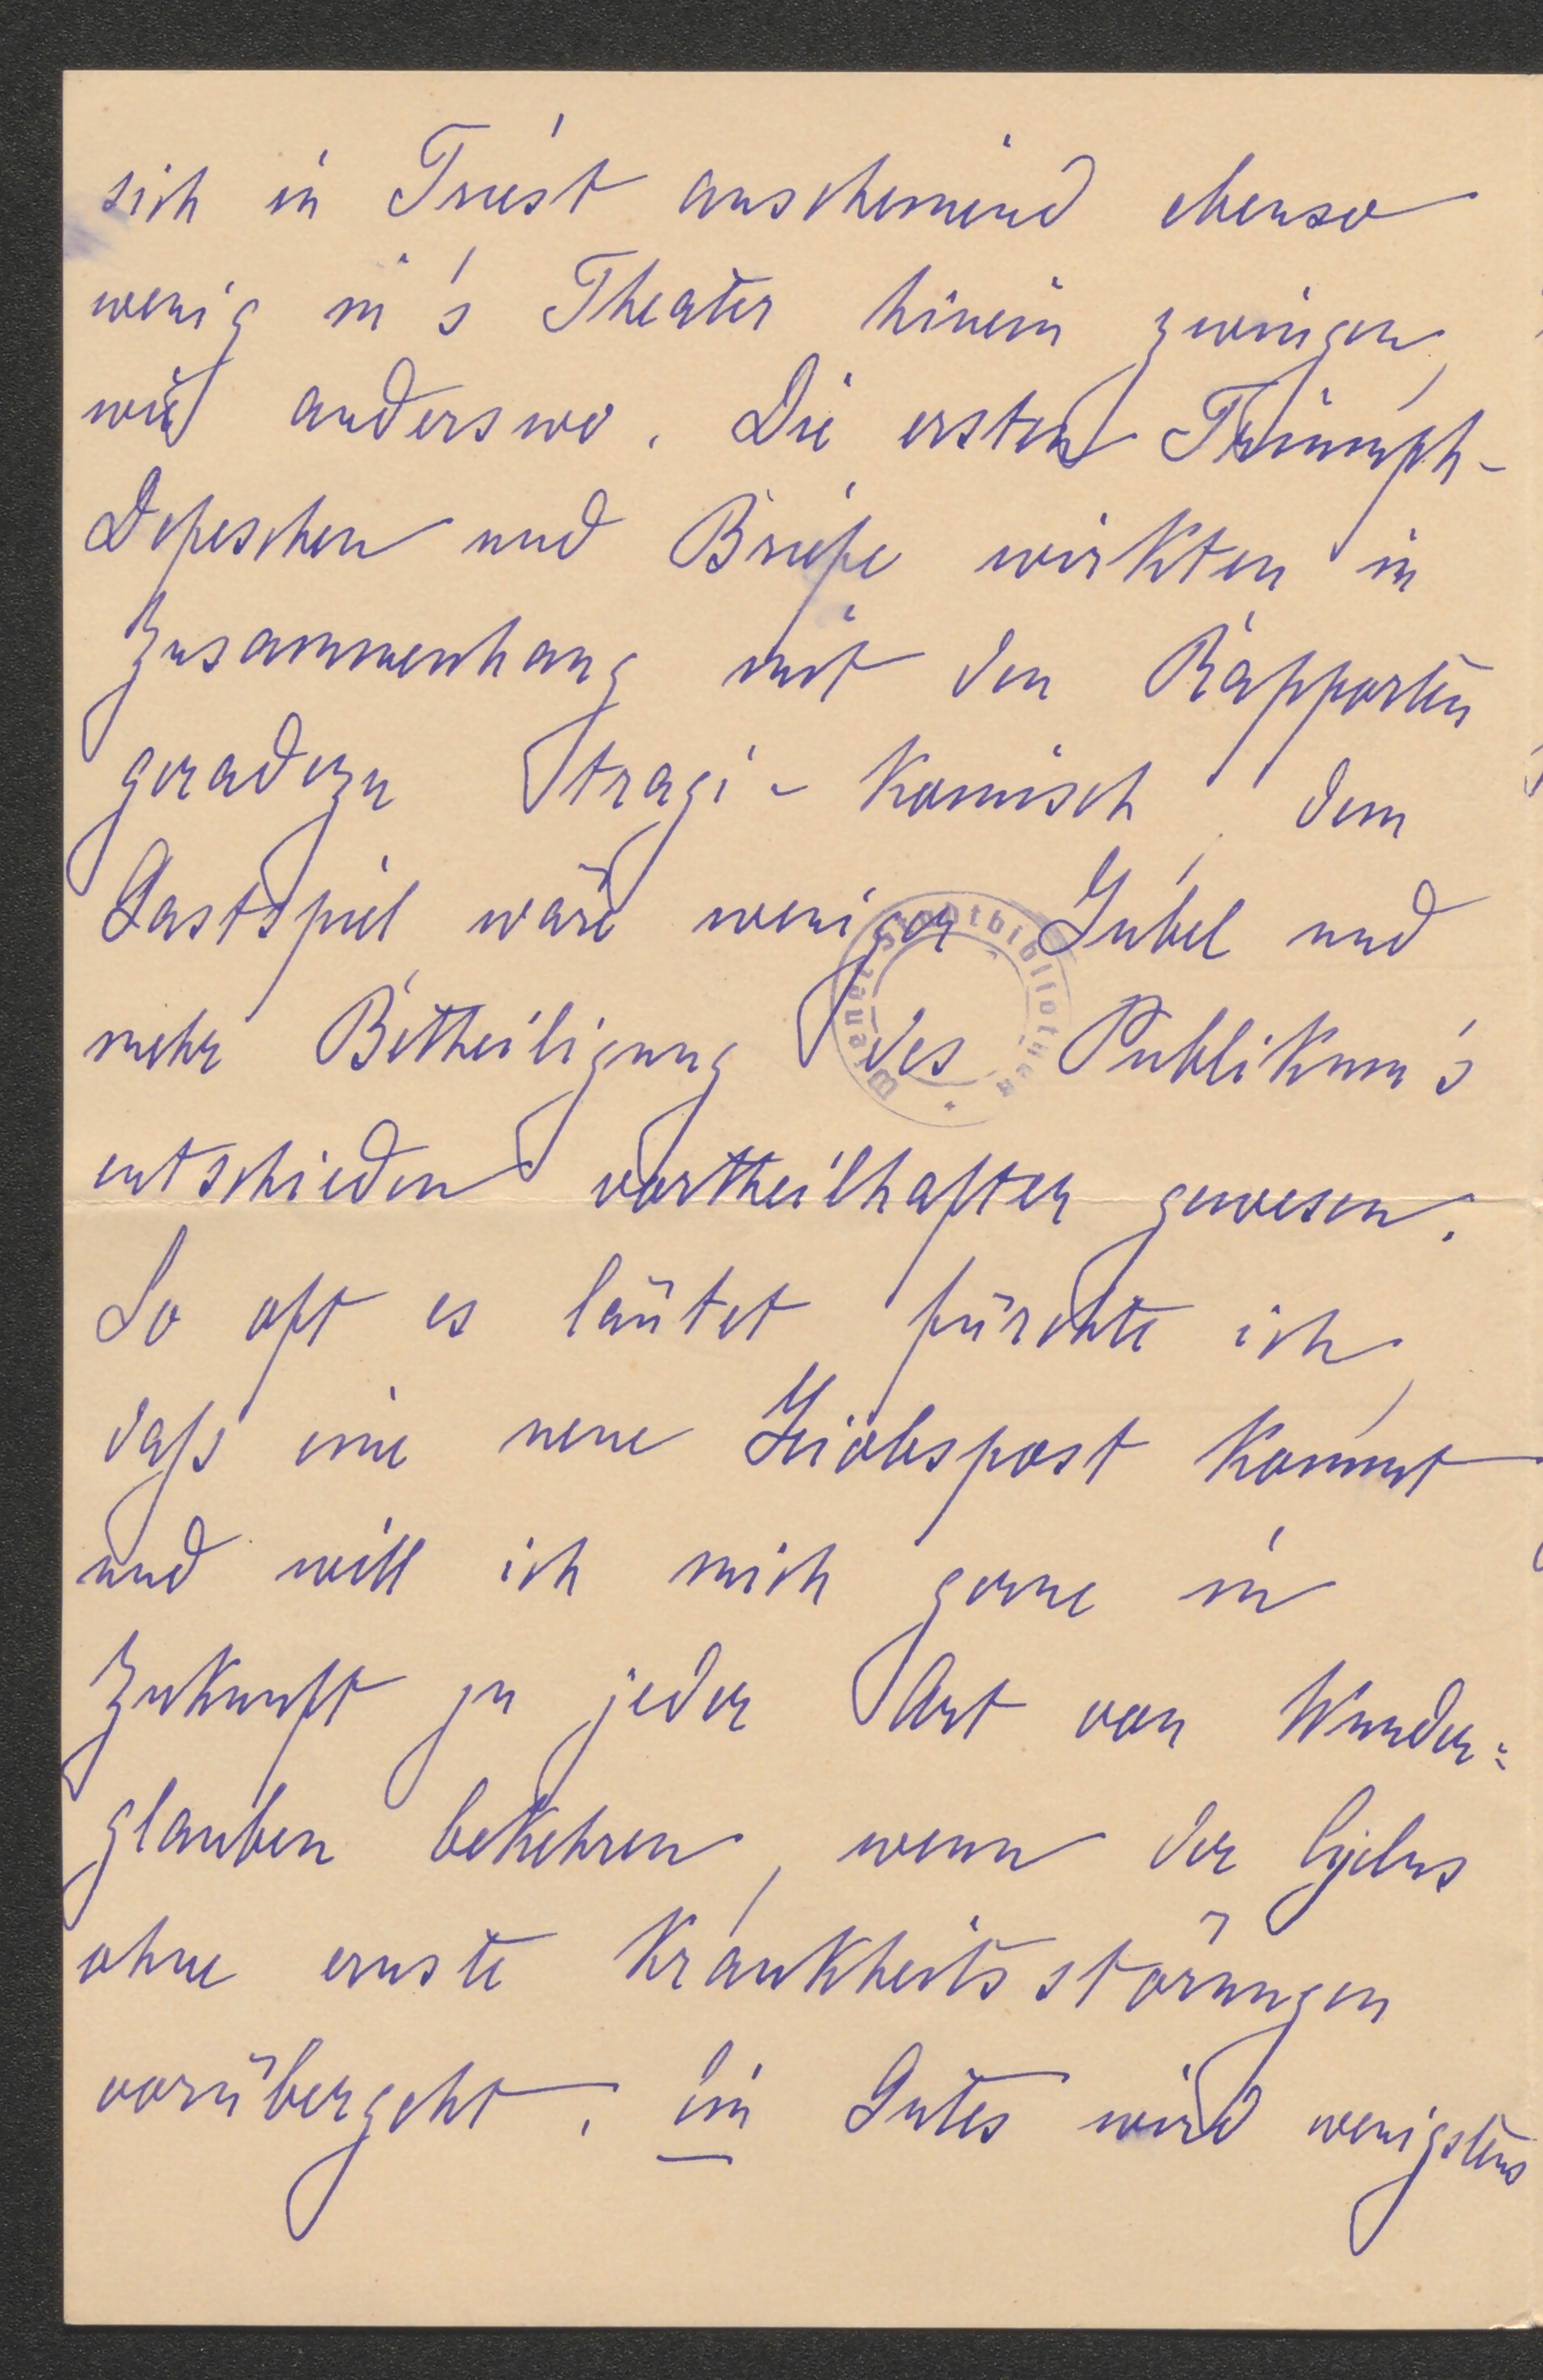 sich in Triest anscheinend ebenso
wenig in's Theater hinein zwingen,
wie anderswo. Die ersten Triumph-
Depeschen und Briefe wirkten in
Zusammenhang mit den Rapporten
geradezu tragi-komisch, dem
Gastspiel wäre weniger Jubel und
mehr Betheiligung des Publikum's
entschieden vortheilhafter gewesen.
So oft es läutet fürchte ich,
daß eine neue Hiobspost kommt
und will ich mich gerne in
Zukunft zu jeder Art von Wunder=
glauben bekehren, wenn der Cyclus
ohne ernste Krankheitsstörungen
vorübergeht. Ein Gutes wird wenigstens
Wiener Stadtbibliothek